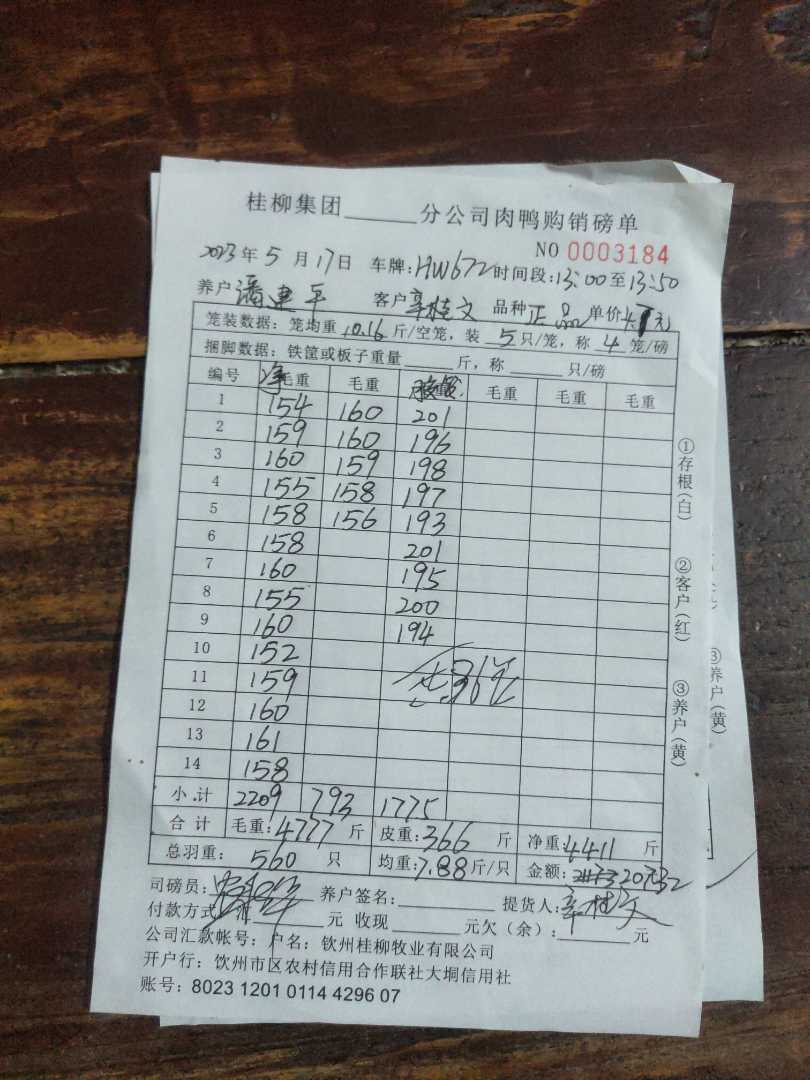 桂柳集团______分公司肉鸭购销磅单
NO 0003184
2023年5月17日 车牌:HW672 时间段:13:00至13:50
养户潘建平 客户辛桂文 品种正品 单价 元
笼装数据:笼均重10.16斤/空笼,装5只/笼,称4笼/磅
捆脚数据:铁筐或板子重量______斤,称______只/磅
编号 毛重 毛重 毛重 毛重 毛重
1 154 160 201
2 159 160 196
3 160 159 198
4 155 158 197
5 158 156 193
6 158 201
7 160 195
8 155 200
9 160 194
10 152
11 159
12 160
13 161
14 158
小计 2209 793 1775
合计 毛重:4777斤 皮重:366斤 净重:4411斤
总羽重: 560 只 均重:7.88斤/只 金额:20732
司磅员: 养户签名:______ 提货人:辛桂文
付款方式: 元 收现______元欠(余):______元
公司汇款帐号:户名:钦州桂柳牧业有限公司
开户行:饮州市区农村信用合作联社大垌信用社
账号:8023 1201 0114 4296 07
①存根(白)
②客户(红)
③养户(黄)
③养户(黄)